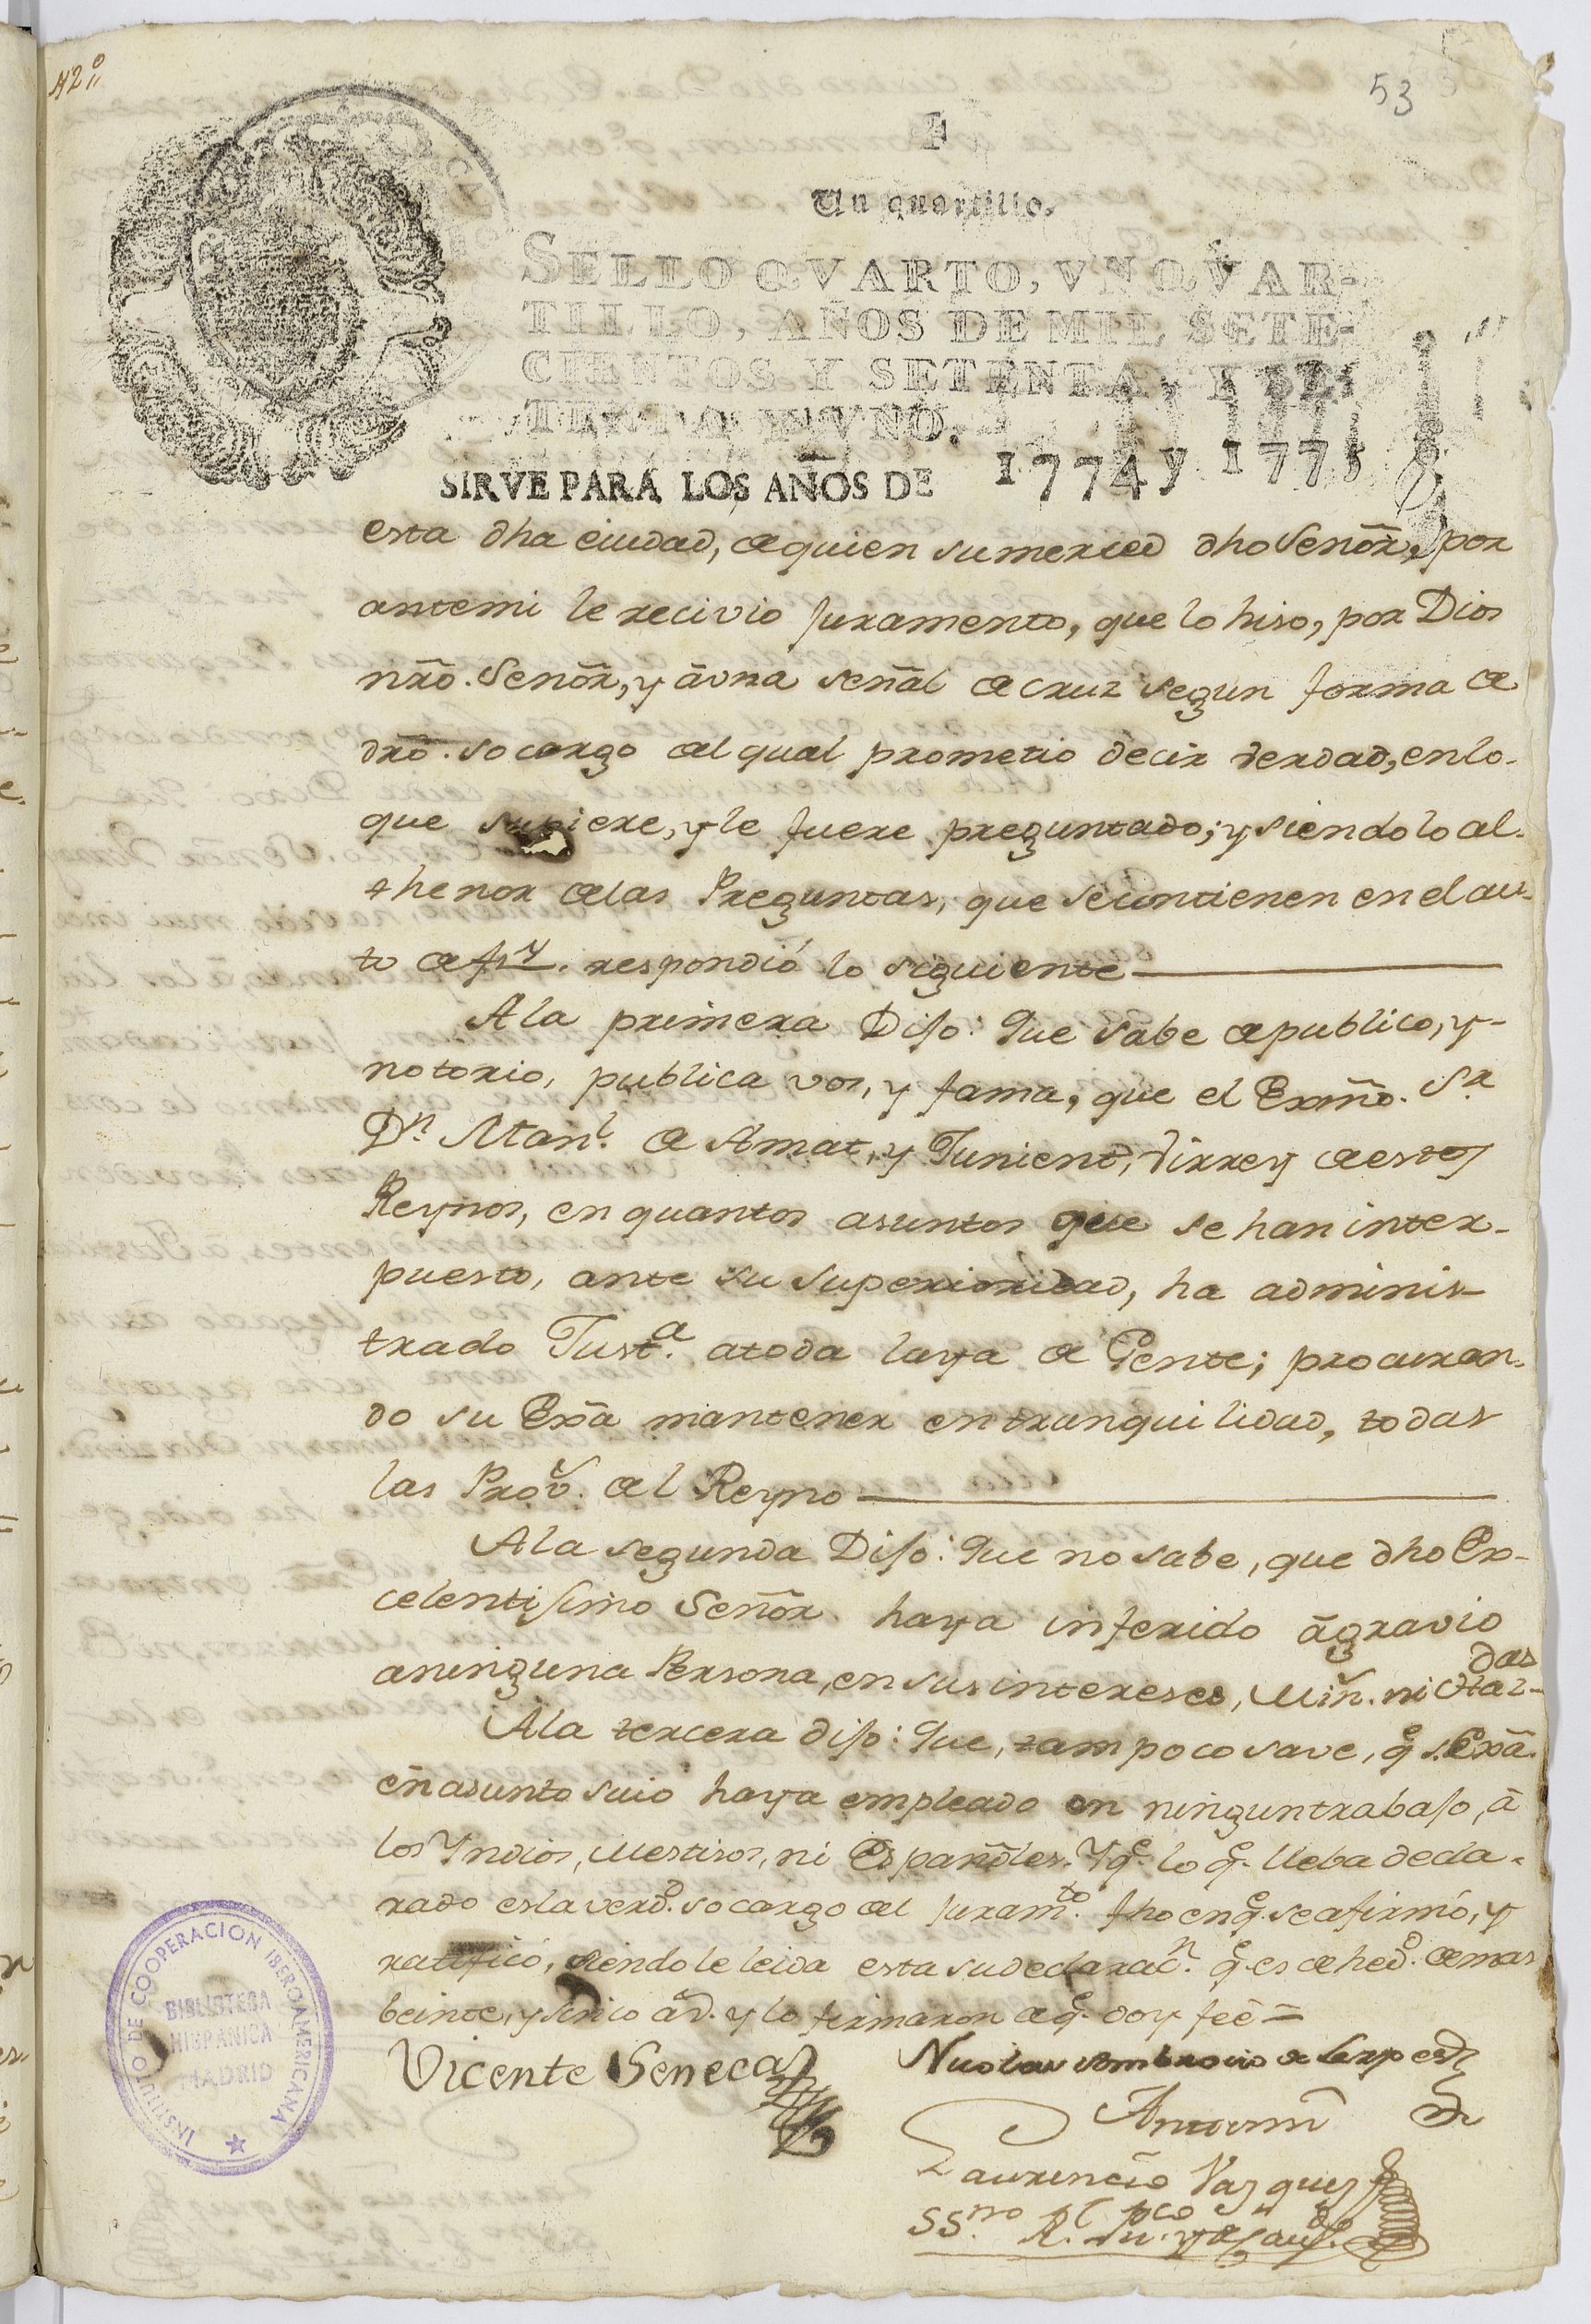 N2º
53
Un quartillo.
SELLO QVARTO, VN QVAR-
TILLO, AÑOS DE MIL SETE-
CIENTOS Y SETENTA, Y SE-
TENTA Y VNO.
SIRVE PARA LOS AÑOS DE 1774 y 1775
esta dha ciudad, de quien su merced dho Señor, por
antemi le recivio juramento, que lo hiso, por Dios
nrõ. Señor, y ã una señal de cruz segun forma de
drõ. so cargo del qual prometio decir verdad, en lo-
que supiere, y le fuere preguntado; y siendolo al-
thenor de las Preguntas, que se contienen en el au-
to de respondió lo siguiente
A la primera Dijo: Que sabe de publico, y-
notorio, publica vos, y fama, que el Exmõ. Sr.
Dn. Manl. de Amat, y Junient, Virrey de estos
Reynos, en quantos asuntos que se han inter-
puesto, ante su superioridad, ha adminis-
trado Justa. a toda laya de Gente; procuran-
do su Exã mantener en tranquilidad, todas
las Provs. del Reyno
A la segunda Dijo: Que no sabe, que dho Ex-
celentissimo Señor haya inferido ãgravio
a ninguna Persona, en sus intereses, Min. ni Haz-
das
A la tercera dijo: Que, tampoco save, qe. s. Exã.
en asunto suio haya empleado en ningun trabajo, ã
los Yndios, Mestisos, ni Españoles. Y qe. lo qe. lleba decla-
rado es la verdd. so cargo del juramto. fho en qe. se afirmó, y
ratificó, siendole leida esta su declaracn. qe. es de hedd. de mas
beinte, y sinco ad. y lo firmaron de qe. doy feé =
Vicente Seneca
Nicolas Ambrocio de
Antemi
Laurencio Vasques
SSno. Rl. Pco.
INSTITUTO DE COOPERACION IBEROAMERICANA
BIBLIOTECA
HISPANICA
MADRID